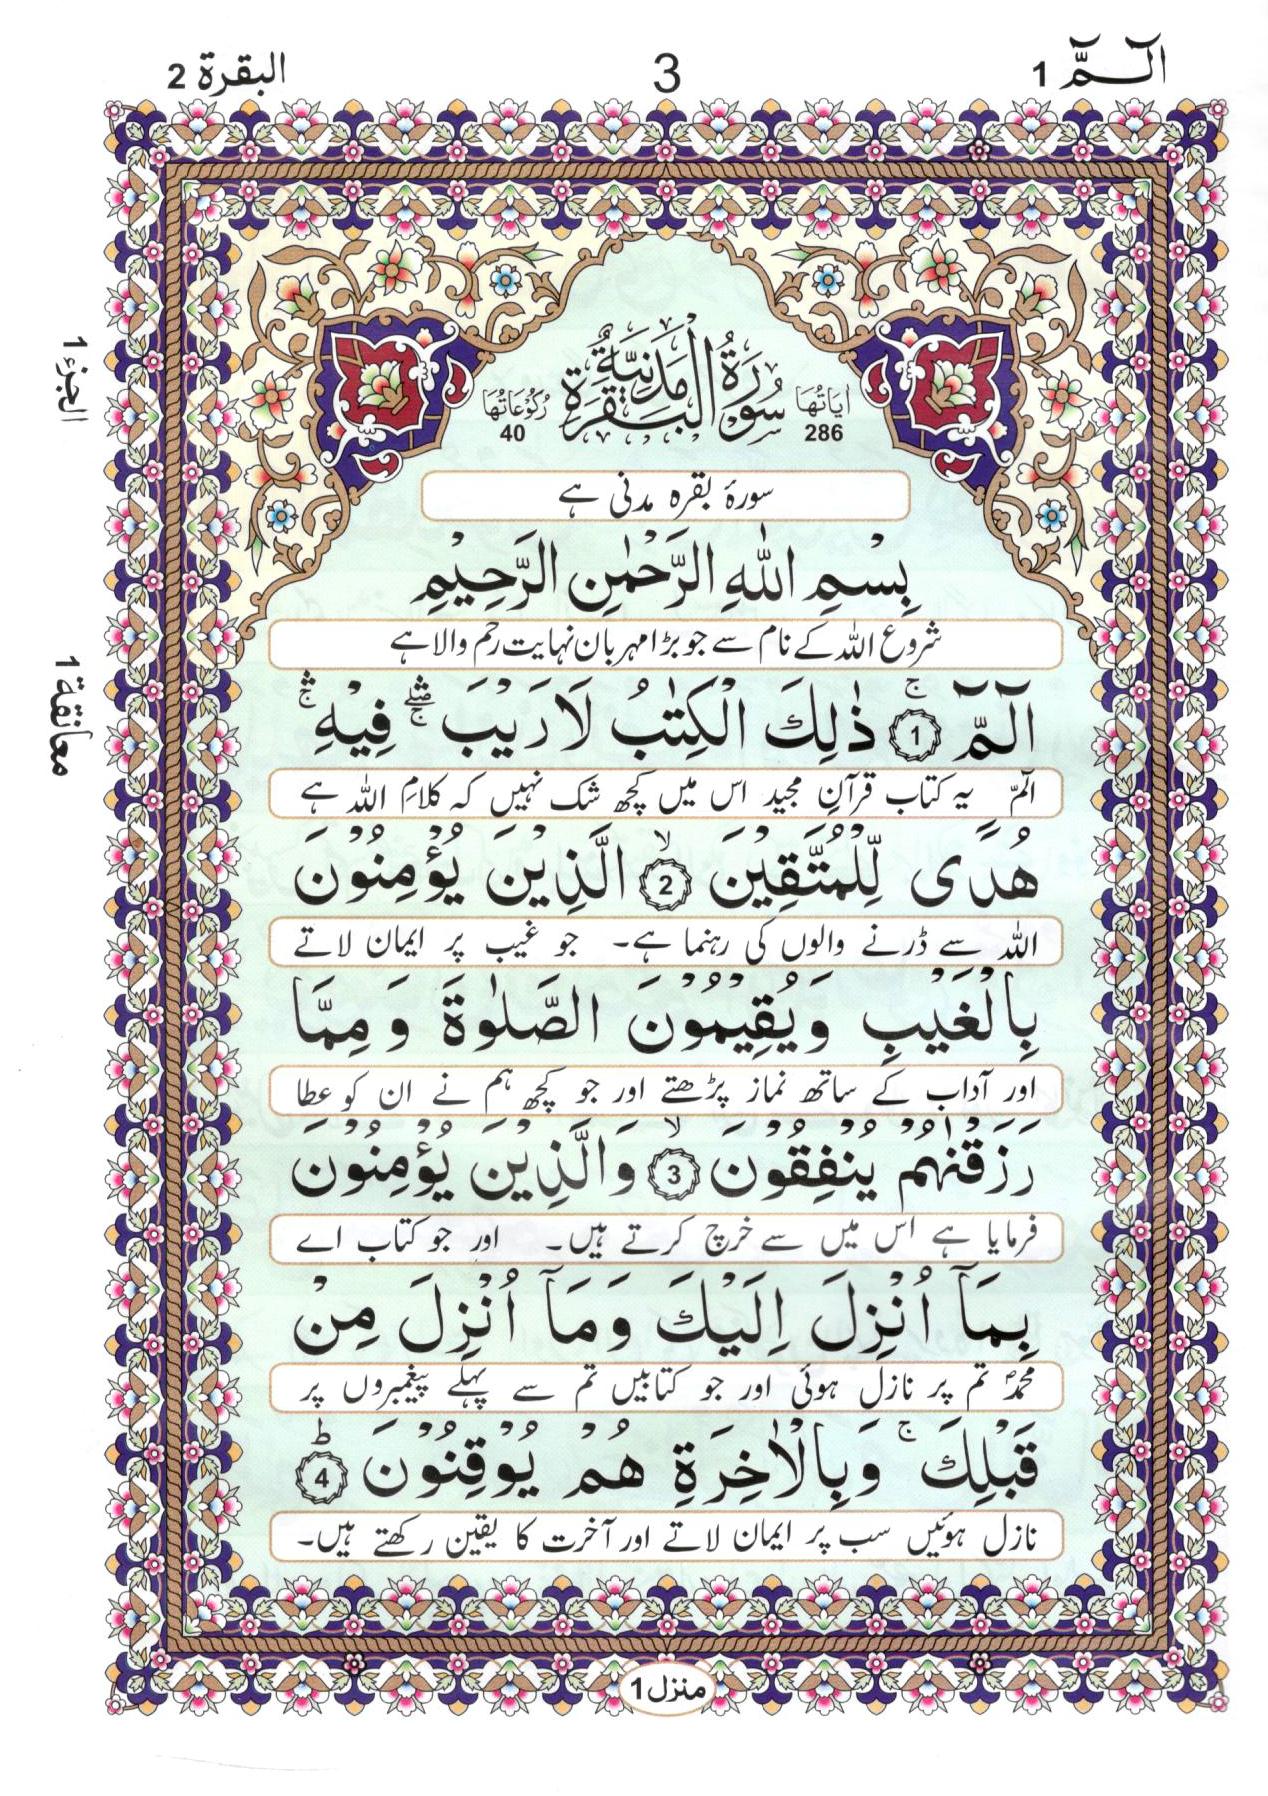 الٓـمّٓ 1
3
البقرة 2
سُوْرَةُ الْبَقَرَةِ مَدَنِيَّةٌ
اٰيَاتُهَا 286
رُكُوْعَاتُهَا 40
سورۂ بقرہ مدنی ہے
بِسْمِ اللّٰهِ الرَّحْمٰنِ الرَّحِيْمِ
شروع اللہ کے نام سے جو بڑا مہربان نہایت رحم والا ہے
الٓمّٓ ۚ ﴿1﴾ ذٰلِكَ الْكِتٰبُ لَا رَيْبَ ۛۖۚ فِيْهِ ۛۚ
الٓمّٓ یہ کتاب قرآنِ مجید اس میں کچھ شک نہیں کہ کلامِ اللہ ہے
هُدًى لِّلْمُتَّقِيْنَ ۙ ﴿2﴾ الَّذِيْنَ يُؤْمِنُوْنَ
اللہ سے ڈرنے والوں کی رہنما ہے۔ جو غیب پر ایمان لاتے
بِالْغَيْبِ وَيُقِيْمُوْنَ الصَّلٰوةَ وَمِمَّا
اور آداب کے ساتھ نماز پڑھتے اور جو کچھ ہم نے ان کو عطا
رَزَقْنٰهُمْ يُنْفِقُوْنَ ۙ ﴿3﴾ وَالَّذِيْنَ يُؤْمِنُوْنَ
فرمایا ہے اس میں سے خرچ کرتے ہیں۔ اور جو کتاب اے
بِمَاۤ اُنْزِلَ اِلَيْكَ وَمَاۤ اُنْزِلَ مِنْ
محمدؐ تم پر نازل ہوئی اور جو کتابیں تم سے پہلے پیغمبروں پر
قَبْلِكَ ۚ وَبِالْاٰخِرَةِ هُمْ يُوْقِنُوْنَ ؕ ﴿4﴾
نازل ہوئیں سب پر ایمان لاتے اور آخرت کا یقین رکھتے ہیں۔
الجزء 1
معانقة 1
منزل 1